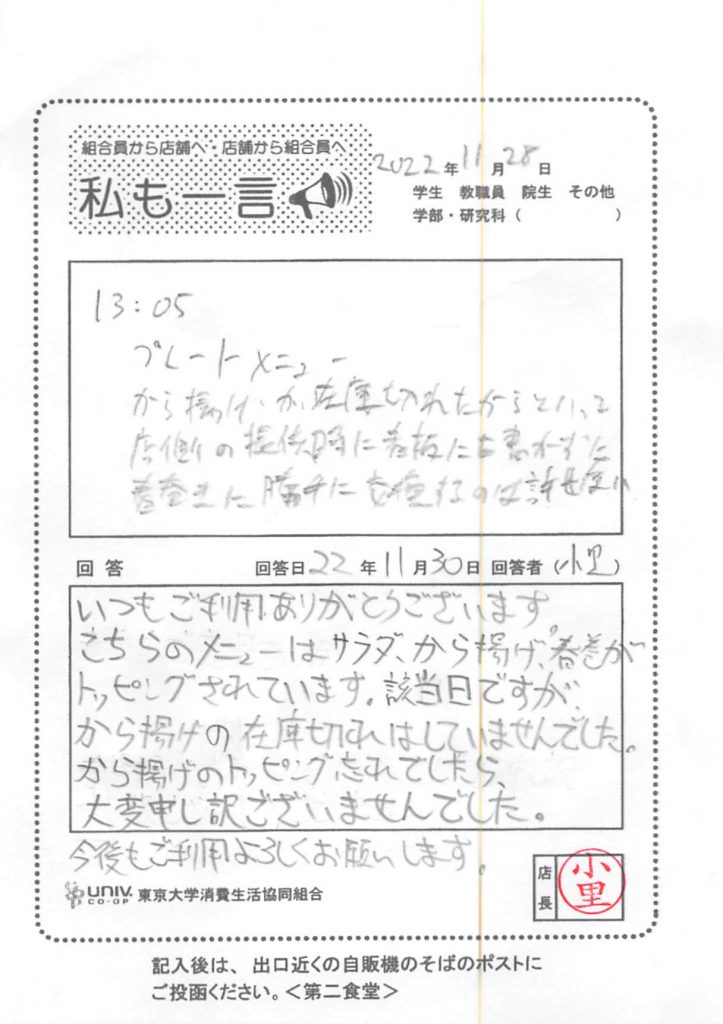 組合員から店舗へ・店舗から組合員へ
私も一言
2022年11月28日
学生 教職員 院生 その他
学部・研究科（ ）
13:05
プレートメニュー
から揚げが在庫切れたからといって
店側の提供時に看板にも書かずに
春巻きに勝手に変更するのは許せない
回答 回答日22年11月30日 回答者（小里）
いつもご利用ありがとうございます。
こちらのメニューはサラダ、から揚げ、春巻が
トッピングされています。該当日ですが、
から揚げの在庫切れはしていませんでした。
から揚げのトッピング忘れでしたら、
大変申し訳ございませんでした。
今後もご利用よろしくお願いします。
店長 小里
UNIV. CO-OP 東京大学消費生活協同組合
記入後は、出口近くの自販機のそばのポストに
ご投函ください。＜第二食堂＞